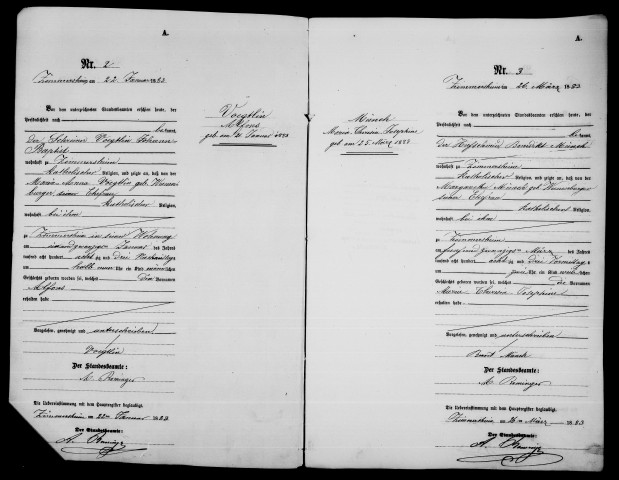 A.
Nr. 2
Zimmersheim am 22. Januar 1883
Vor dem unterzeichneten Standesbeamten erschien heute, der
Persönlichkeit nach
bekannt,
der Schreiner Voegtlin Johann
Baptist
wohnhaft zu Zimmersheim
katholischer Religion, und zeigte an, daß von der
Maria Anna Voegtlin geb.
seiner Ehefrau
katholischer Religion,
wohnhaft bei ihm
zu Zimmersheim in seiner Wohnung
am Januar des Jahres
tausend acht hundert acht zig und drei Nachmittags
um halb Uhr ein Kind männlichen
Geschlechts geboren worden sei, welches den Vornamen
Alfons
erhalten habe
Vorgelesen, genehmigt und unterschrieben
Voegtlin
Der Standesbeamte:
M. Reminger
Die Uebereinstimmung mit dem Hauptregister beglaubigt.
Zimmersheim am 22ten Januar 1883
Der Standesbeamte:
Voegtlin
Alfons
geb. am Januar 1883
A.
Nr. 3
Zimmersheim am 26. März 1883
Vor dem unterzeichneten Standesbeamten erschien heute, der
Persönlichkeit nach
bekannt,
der Benedikt Münck
wohnhaft zu Zimmersheim
katholischer Religion, und zeigte an, daß von der
Margaretha Münck geb.
seiner Ehefrau
katholischer Religion,
wohnhaft bei ihm
zu Zimmersheim
am fünfundzwanzigsten März des Jahres
tausend acht hundert acht zig und drei Vormittags
um zwei Uhr ein Kind weiblichen
Geschlechts geboren worden sei, welches die Vornamen
Maria Theresia Josephine
erhalten habe
Vorgelesen, genehmigt und unterschrieben
Münck
Der Standesbeamte:
M. Reminger
Die Uebereinstimmung mit dem Hauptregister beglaubigt.
Zimmersheim am 26ten März 1883
Der Standesbeamte:
Münck
Maria Theresia Josephine
geb. am 25. März 1883